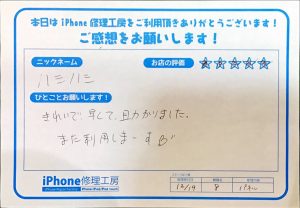 本日は iPhone 修理工房をご利用頂きありがとうございます！
ご感想をお願いします！
ニックネーム
ハミハミ
お店の評価
★★★★★
ひとことお願いします！
きれいで早くて、助かりました。
また利用しまーす
iPhone修理工房
12/19
8
パネル